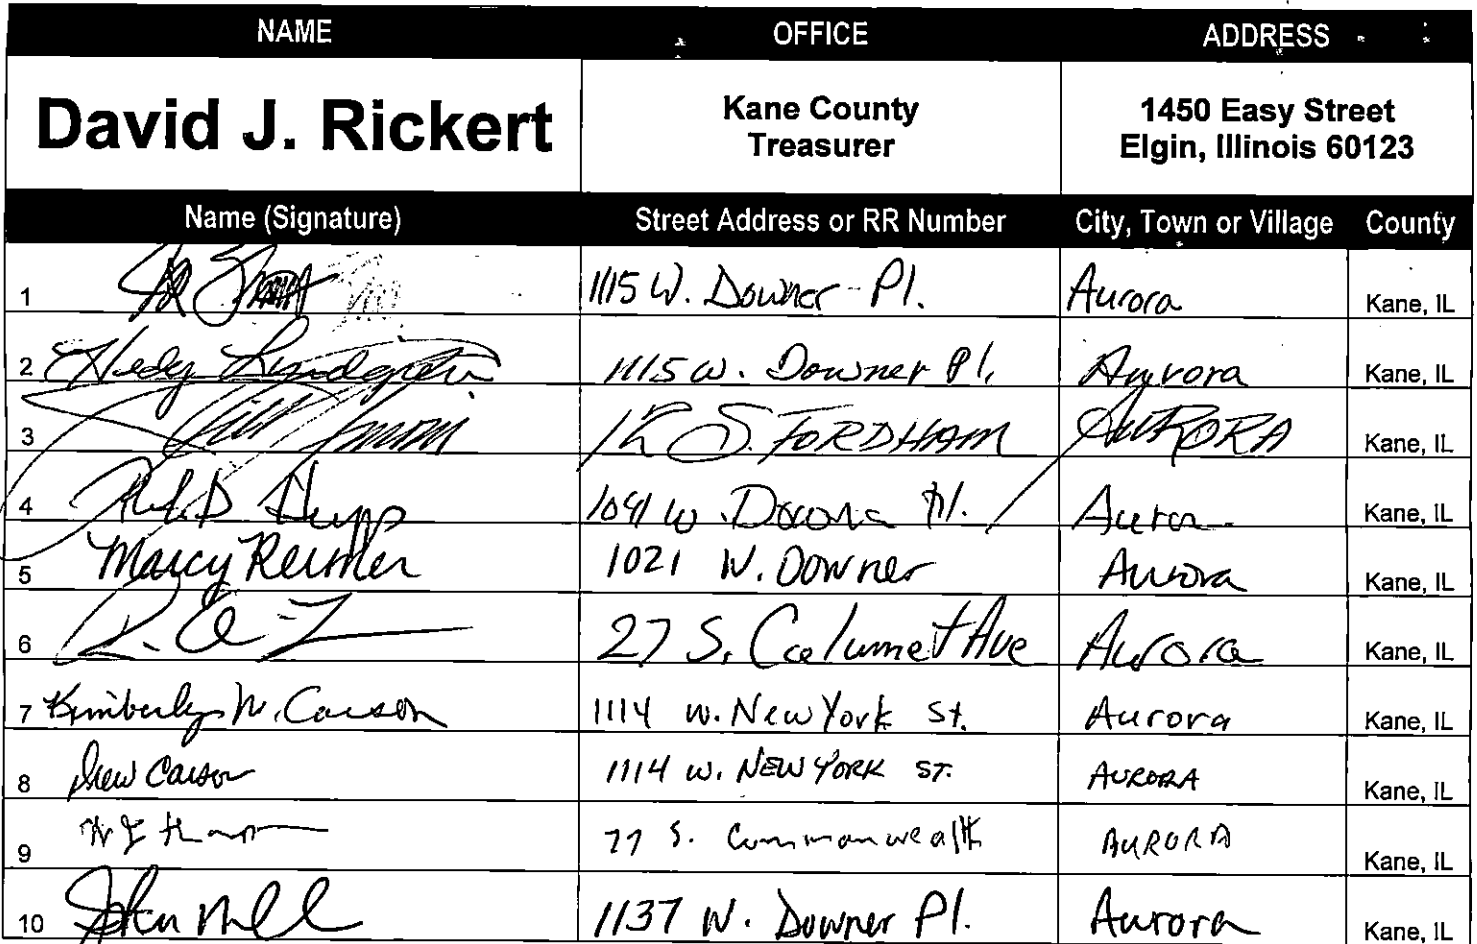 NAME OFFICE ADDRESS
David J. Rickert Kane County Treasurer 1450 Easy Street Elgin, Illinois 60123
Name (Signature) Street Address or RR Number City, Town or Village County
1 1115 W. Downer Pl. Aurora Kane, IL
2 Hedy 1115 W. Downer Pl. Aurora Kane, IL
3 S. FORDHAM AURORA Kane, IL
4 W. Pl. Aurora Kane, IL
5 Marcy 1021 W. Downer Aurora Kane, IL
6 27 S. Calumet Ave Aurora Kane, IL
7 Kimberly M. Carson 1114 W. New York St. Aurora Kane, IL
8 Drew Carson 1114 W. NEW YORK ST. AURORA Kane, IL
9 77 S. Commonwealth AURORA Kane, IL
10 John 1137 W. Downer Pl. Aurora Kane, IL